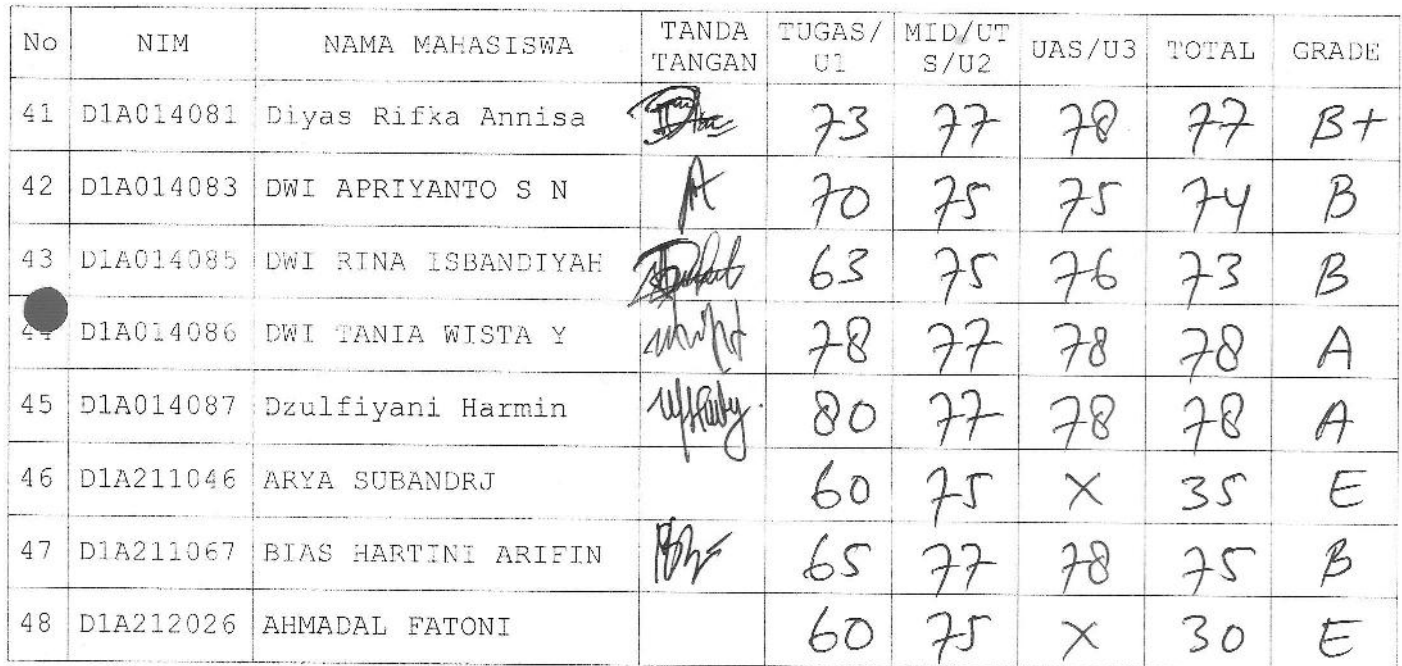 No NIM NAMA MAHASISWA TANDA TANGAN TUGAS/U1 MID/UTS/U2 UAS/U3 TOTAL GRADE
41 D1A014081 Diyas Rifka Annisa 73 77 78 77 B+
42 D1A014083 DWI APRIYANTO S N 70 75 75 74 B
43 D1A014085 DWI RINA ISBANDIYAH 63 75 76 73 B
44 D1A014086 DWI TANIA WISTA Y 78 77 78 78 A
45 D1A014087 Dzulfiyani Harmin 80 77 78 78 A
46 D1A211046 ARYA SUBANDRJ 60 75 X 35 E
47 D1A211067 BIAS HARTINI ARIFIN 65 77 78 75 B
48 D1A212026 AHMADAL FATONI 60 75 X 30 E